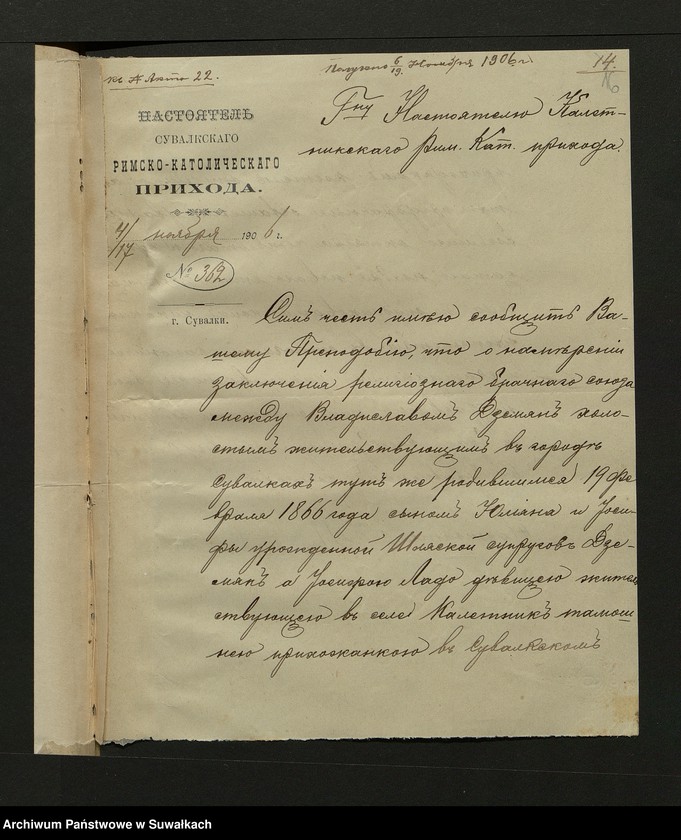 къ № Акта 22.
Получено 6/19. Ноября 1906 г.
14.
16
НАСТОЯТЕЛЬ
СУВАЛКСКАГО
РИМСКО-КАТОЛИЧЕСКАГО
ПРИХОДА.
4/17 ноября 1906 г.
№ 362
г. Сувалки.
Гну Настоятелю Калет-
никскаго Рим. Кат. прихода.
Симъ честь имѣю сообщить Ва-
шему Преподобію, что о намѣреніи
заключенія религіознаго брачнаго союза
между Владиславомъ Дземянъ холо-
стымъ жительствующимъ въ городѣ
Сувалкахъ тутъ же родившимся 19 фе
враля 1866 года сыномъ Юліана и Іоси-
фы урожденной Шляской супруговъ Дзе-
мянъ а Іосифою Ладо дѣвицею житель
ствующею въ селѣ Калетникъ тамош
нею прихожанкою въ Сувалкскомъ
Archiwum Państwowe w Suwałkach